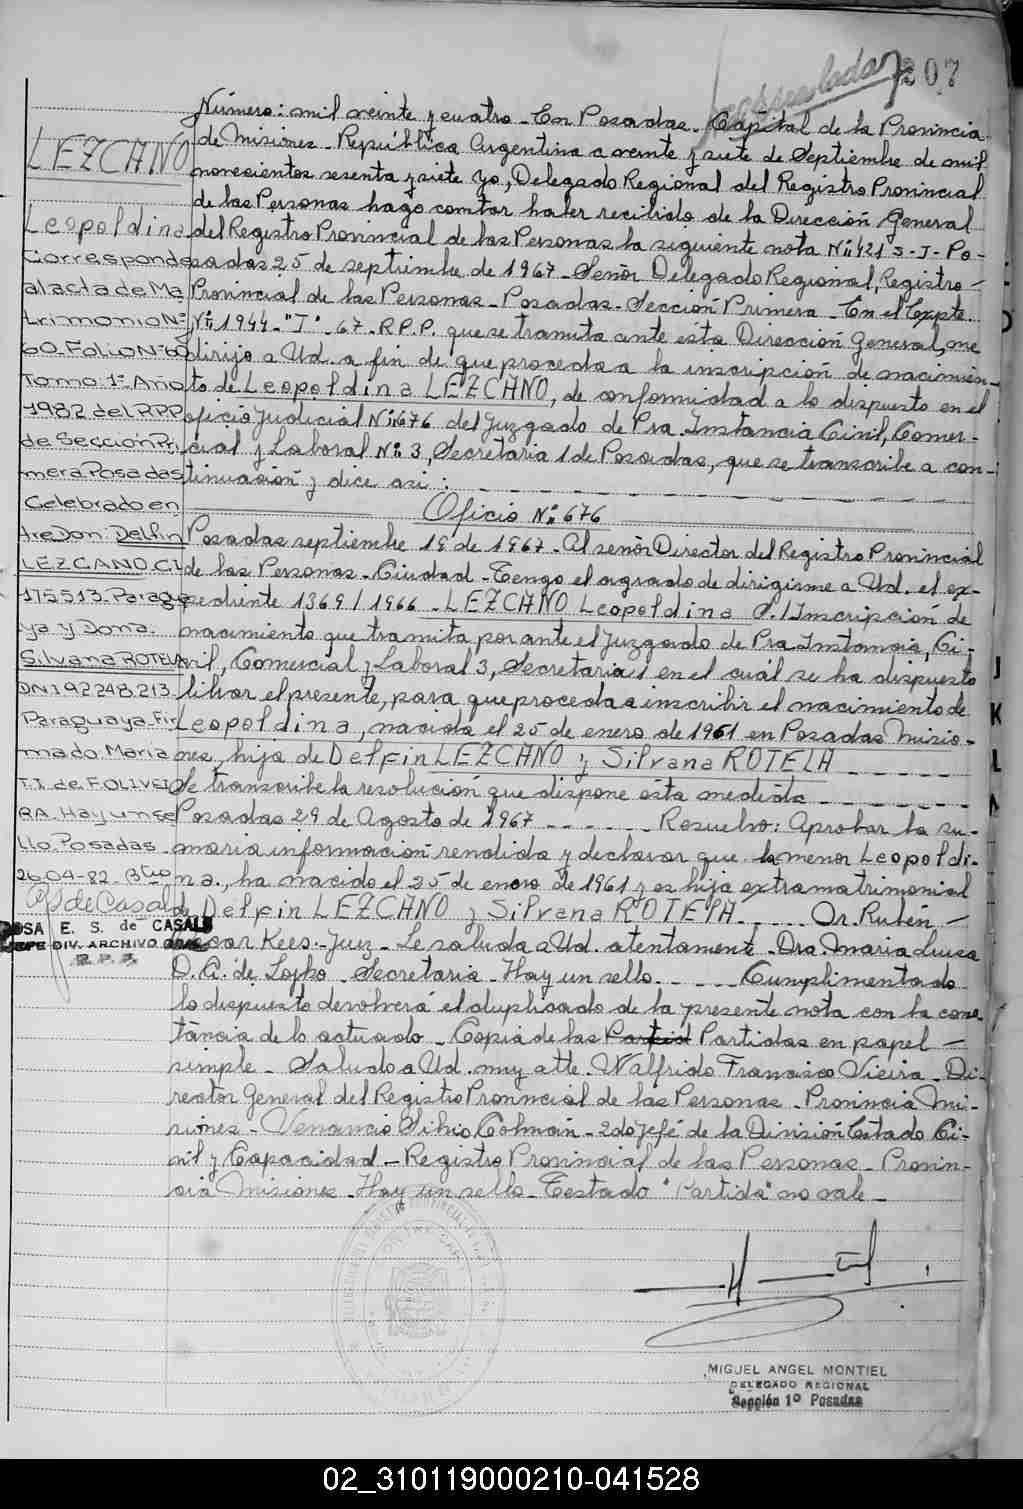 207
Número: mil veinte y cuatro - En Posadas - Capital de la Provincia
de Misiones - República Argentina a veinte y siete de Septiembre de mil
novecientos sesenta y siete yo, Delegado Regional del Registro Provincial
de las Personas hago constar haber recibido de la Dirección General
del Registro Provincial de las Personas la siguiente nota Nº: 421 S-J-Po-
sadas 25 de septiembre de 1967 - Señor Delegado Regional, Registro -
Provincial de las Personas - Posadas - Sección Primera - En el Expte.
Nº: 1944 - "I" - 67 - R.P.P. que se tramita ante ésta Dirección General, me
dirijo a Ud. a fin de que proceda a la inscripción de nacimien-
to de Leopoldina LEZCANO, de conformidad a lo dispuesto en el
oficio Judicial Nº: 676 del Juzgado de Pra. Instancia Civil, Comer-
cial y Laboral Nº: 3, Secretaria 1 de Posadas, que se transcribe a con-
tinuación y dice así:
Oficio Nº: 676
Posadas septiembre 19 de 1967 - Al señor Director del Registro Provincial
de las Personas - Ciudad - Tengo el agrado de dirigirme a Ud. el ex-
pediente 1369/1966 - LEZCANO Leopoldina S./Inscripción de
nacimiento que tramita por ante el Juzgado de Pra Instancia, Ci-
vil, Comercial y Laboral 3, Secretaria 1 en el cuál se ha dispuesto
librar el presente, para que proceda a inscribir el nacimiento de
Leopoldina, nacida el 25 de enero de 1961 en Posadas Misio-
nes, hija de Delfin LEZCANO y Silvana ROTELA
Se transcribe la resolución que dispone ésta medida
Posadas 29 de Agosto de 1967 - Resuelvo: Aprobar la su-
maria información rendida y declarar que la menor Leopoldi-
na., ha nacido el 25 de enero de 1961 y es hija extramatrimonial
de Delfin LEZCANO y Silvana ROTELA. Dr. Rubén -
Oscar Kees - Juez - Le saluda a Ud. atentamente - Dra. Maria Luisa
D. A. de Lojko - Secretaria - Hay un sello. Cumplimentado
lo dispuesto devolverá el duplicado de la presente nota con la cons
tancia de lo actuado - Copia de las Partid Partidas en papel -
simple - Saludo a Ud. muy atte. Walfrido Francisco Vieira - Di-
rector General del Registro Provincial de las Personas - Provincia Mi-
siones - Venancio Silvio Colmán - 2do Jefe de la División Estado Ci-
vil y Capacidad - Registro Provincial de las Personas - Provin-
cia Misiones - Hay un sello - Testado "Partida" no vale -
LEZCANO
Leopoldina
Corresponde
al acta de Ma
trimonio Nº
60 Folio Nº 60
Tomo 1º Año
1982 del RPP
de Sección Pri
mera Posadas
Celebrado en
tre Don Delfin
LEZCANO C.I.
175513 Paragua
ya y Doña
Silvana ROTELA
DNI 92248.213
Paraguaya Fir
mado Maria
T.T. de F. OLIVEI
RA Hay un se
llo Posadas
26-04-82
ROSA E. S. de CASALS
JEFE DIV. ARCHIVO
R.P.P.
MIGUEL ANGEL MONTIEL
DELEGADO REGIONAL
Sección 1º Posadas
J
K
L
02_310119000210-041528